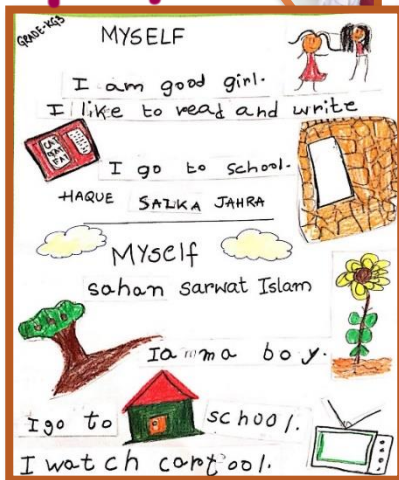 GRADE-KG3
MYSELF
I am good girl.
I like to read and write
CAT
RAT
FAT
I go to school.
HAQUE SALKA JAHRA
Myself
sahan sarwat Islam
Iamma boy.
Igo to school.
I watch cartool.